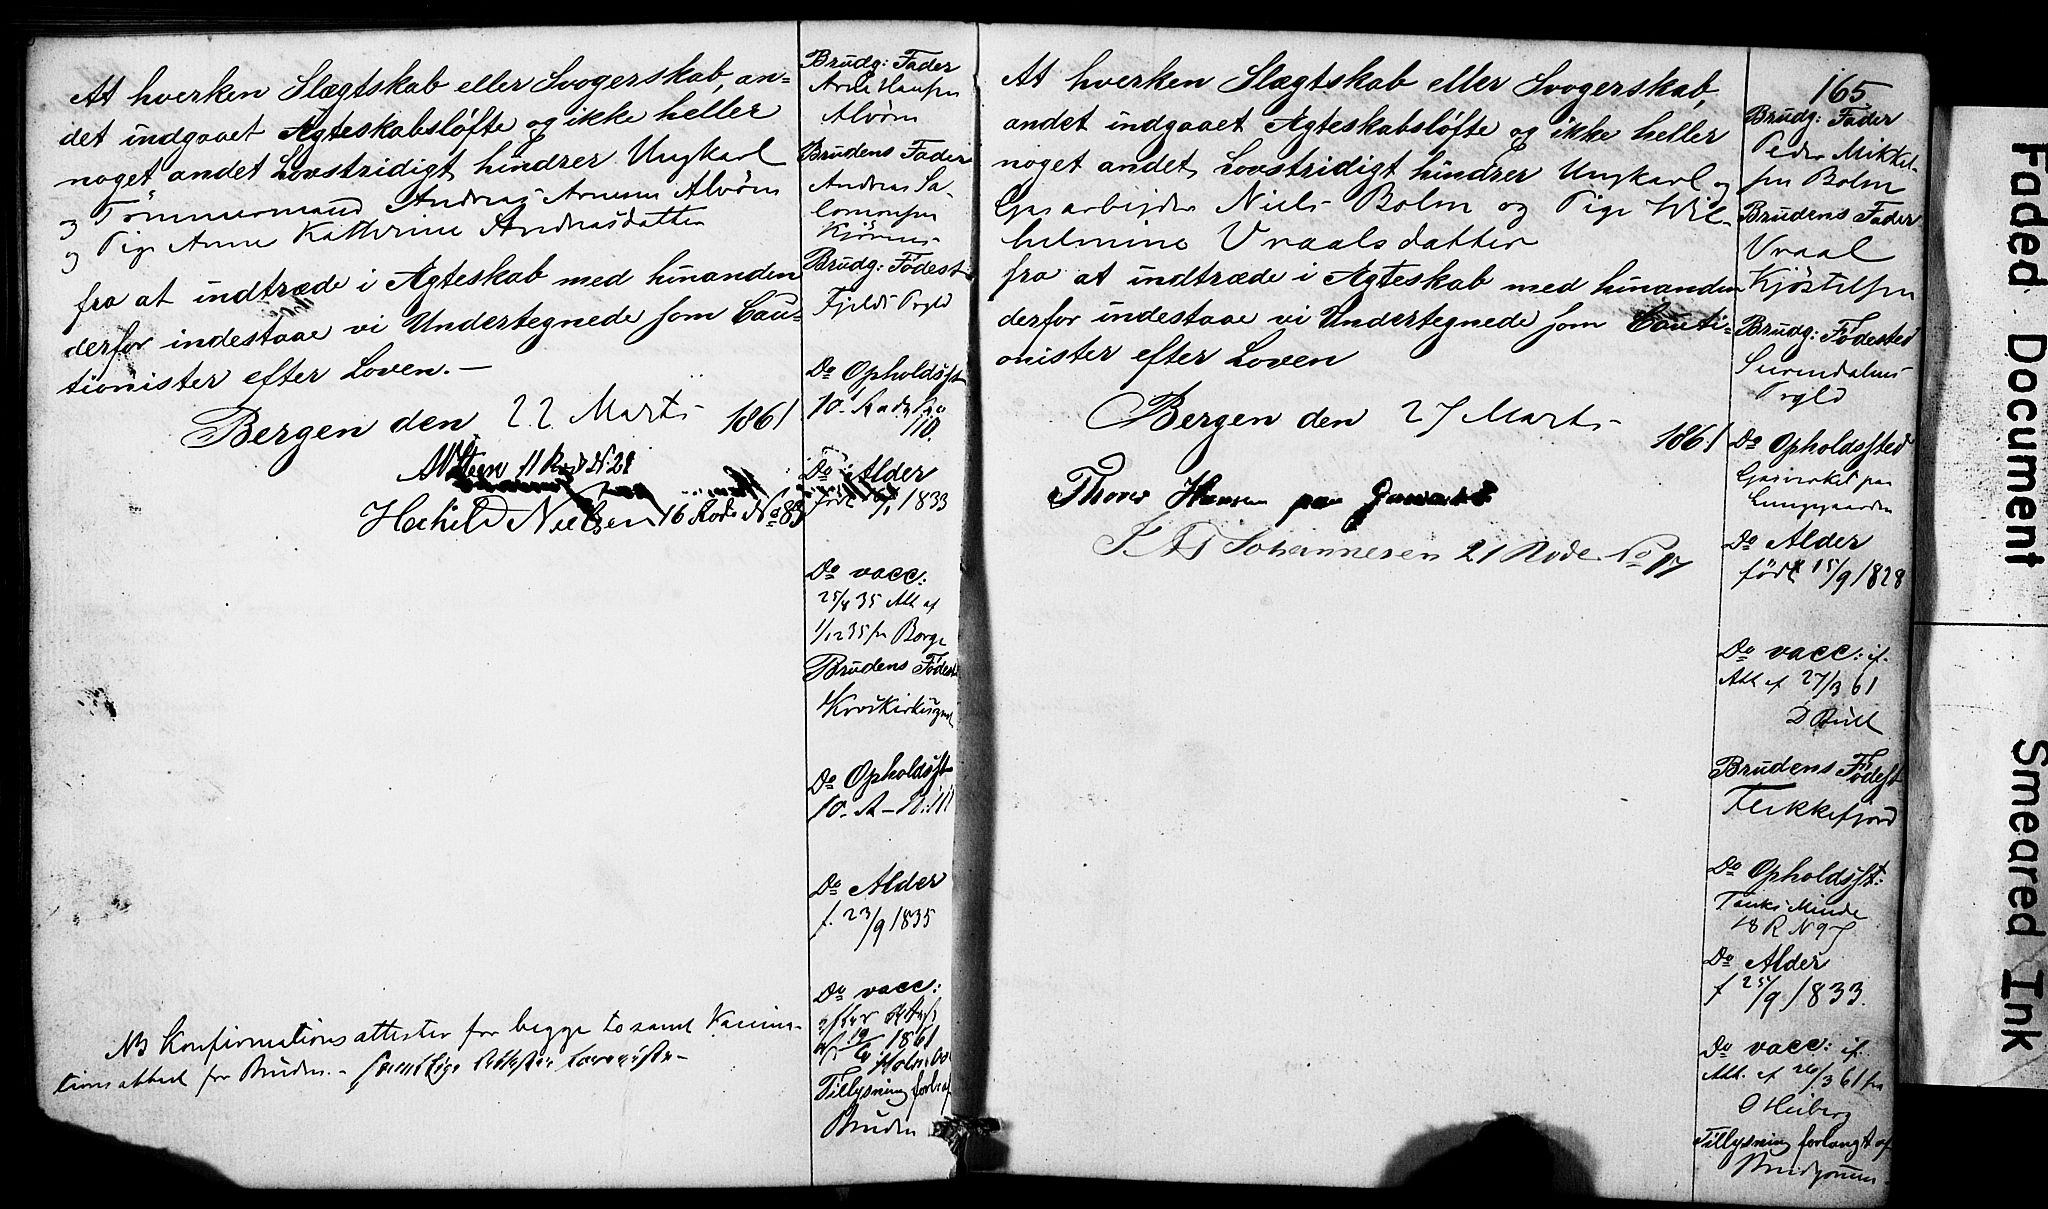 At hverken Slægtskab eller Svogerskab, an=
det indgaaet Ægteskabsløfte og ikke heller
noget andet Lovstridigt hindrer Ungkarl
og Tømmermand Andreas Arnesen Alvøen
og Pige Anne Kathrine Andreasdatter
fra at indtræde i Ægteskab med hinanden
derfor indestaae vi Undertegnede som Cau=
tionister efter Loven.—
Bergen den 22 Marts 1861
11 Rode N 21
Hachild Nielsen 16 Rode No 83
NB Konfirmationsattester for begge to samt
for Bruden.—
Brudg: Fader
Hansen
Alvøen
Brudens Fader
Andreas Sa-
lomonsen
Brudg: Fødest
Fjelds Prgld
Do Opholdsst
10. Rode No
110.
Do Alder
født 1833
Do vacc:
25/8 35 Att af
1/12 35 fra Borge
Brudens Fødest
Korskirkesogn
Do Opholdsst
10. R — N: 111
Do Alder
f. 23/9 1835
Do vacc:
efter Att
1861
Tillysning forl: af
Bruden
165
At hverken Slægtskab eller Svogerskab,
andet indgaaet Ægteskabsløfte og ikke heller
noget andet Lovstridigt hindrer Ungkarl og
Gasarbejder Niels Bolm og Pige Wil-
helmine Vraalsdatter
fra at indtræde i Ægteskab med hinanden
derfor indestaae vi Undertegnede som Cauti=
onister efter Loven
Bergen den 27 Marts 1861
Thore Hansen paa
Johannesen 21 Rode No 97
Brudg: Fader
Peder Mikkel-
sen Bolm
Brudens Fader
Vraal
Kjøstelsen
Brudg: Fødested
Surendalens
Prgld
Do Opholdssted
Gasverket paa
Lungegaarden
Do Alder
født 15/9 1828
Do vacc: if.
Att af 27/3 61
D Bull
Brudens Fødest
Flekkefjord
Do Opholdsst:
Tanks Minde
18 R N 97
Do Alder
f 25/9 1833.
Do vacc: if.
Att. af 26/3 61 fra
O Heiberg
Tillysning forlangt af
Brudgommen
Faded Document
Smeared Ink